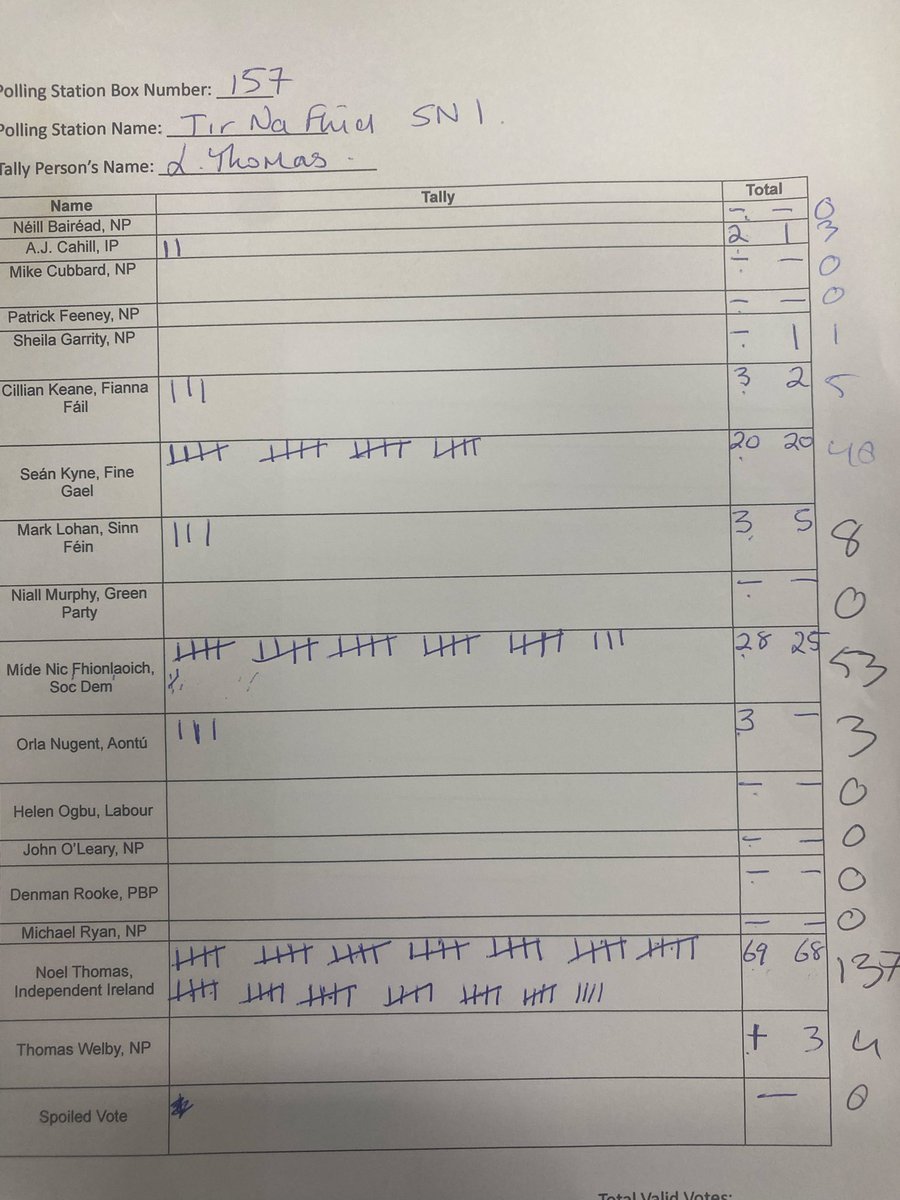 Polling Station Box Number: 157
Polling Station Name: Tir Na Fhid SN 1.
Tally Person's Name: L. Thomas.
Name Tally Total
Néill Bairéad, NP - - 0
A.J. Cahill, IP || 2 1 3
Mike Cubbard, NP - - 0
Patrick Feeney, NP - - 0
Sheila Garrity, NP - 1 1
Cillian Keane, Fianna
Fáil ||| 3 2 5
Seán Kyne, Fine
Gael 20 20 40
Mark Lohan, Sinn
Féin ||| 3 5 8
Niall Murphy, Green
Party - - 0
Míde Nic Fhionlaoich,
Soc Dem 28 25 53
Orla Nugent, Aontú ||| 3 - 3
Helen Ogbu, Labour - - 0
John O'Leary, NP - - 0
Denman Rooke, PBP - - 0
Michael Ryan, NP - - 0
Noel Thomas,
Independent Ireland 69 68 137
Thomas Welby, NP 1 3 4
Spoiled Vote - 0
Total Valid Votes: